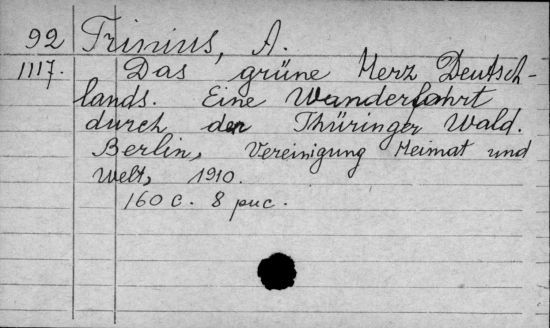 92 Trinius, A.
1117. Das grüne Herz Deutsch-
lands. Eine Wanderfahrt
durch den Thüringer Wald.
Berlin, Vereinigung Heimat und
Welt, 1910.
160 с. 8 рис.